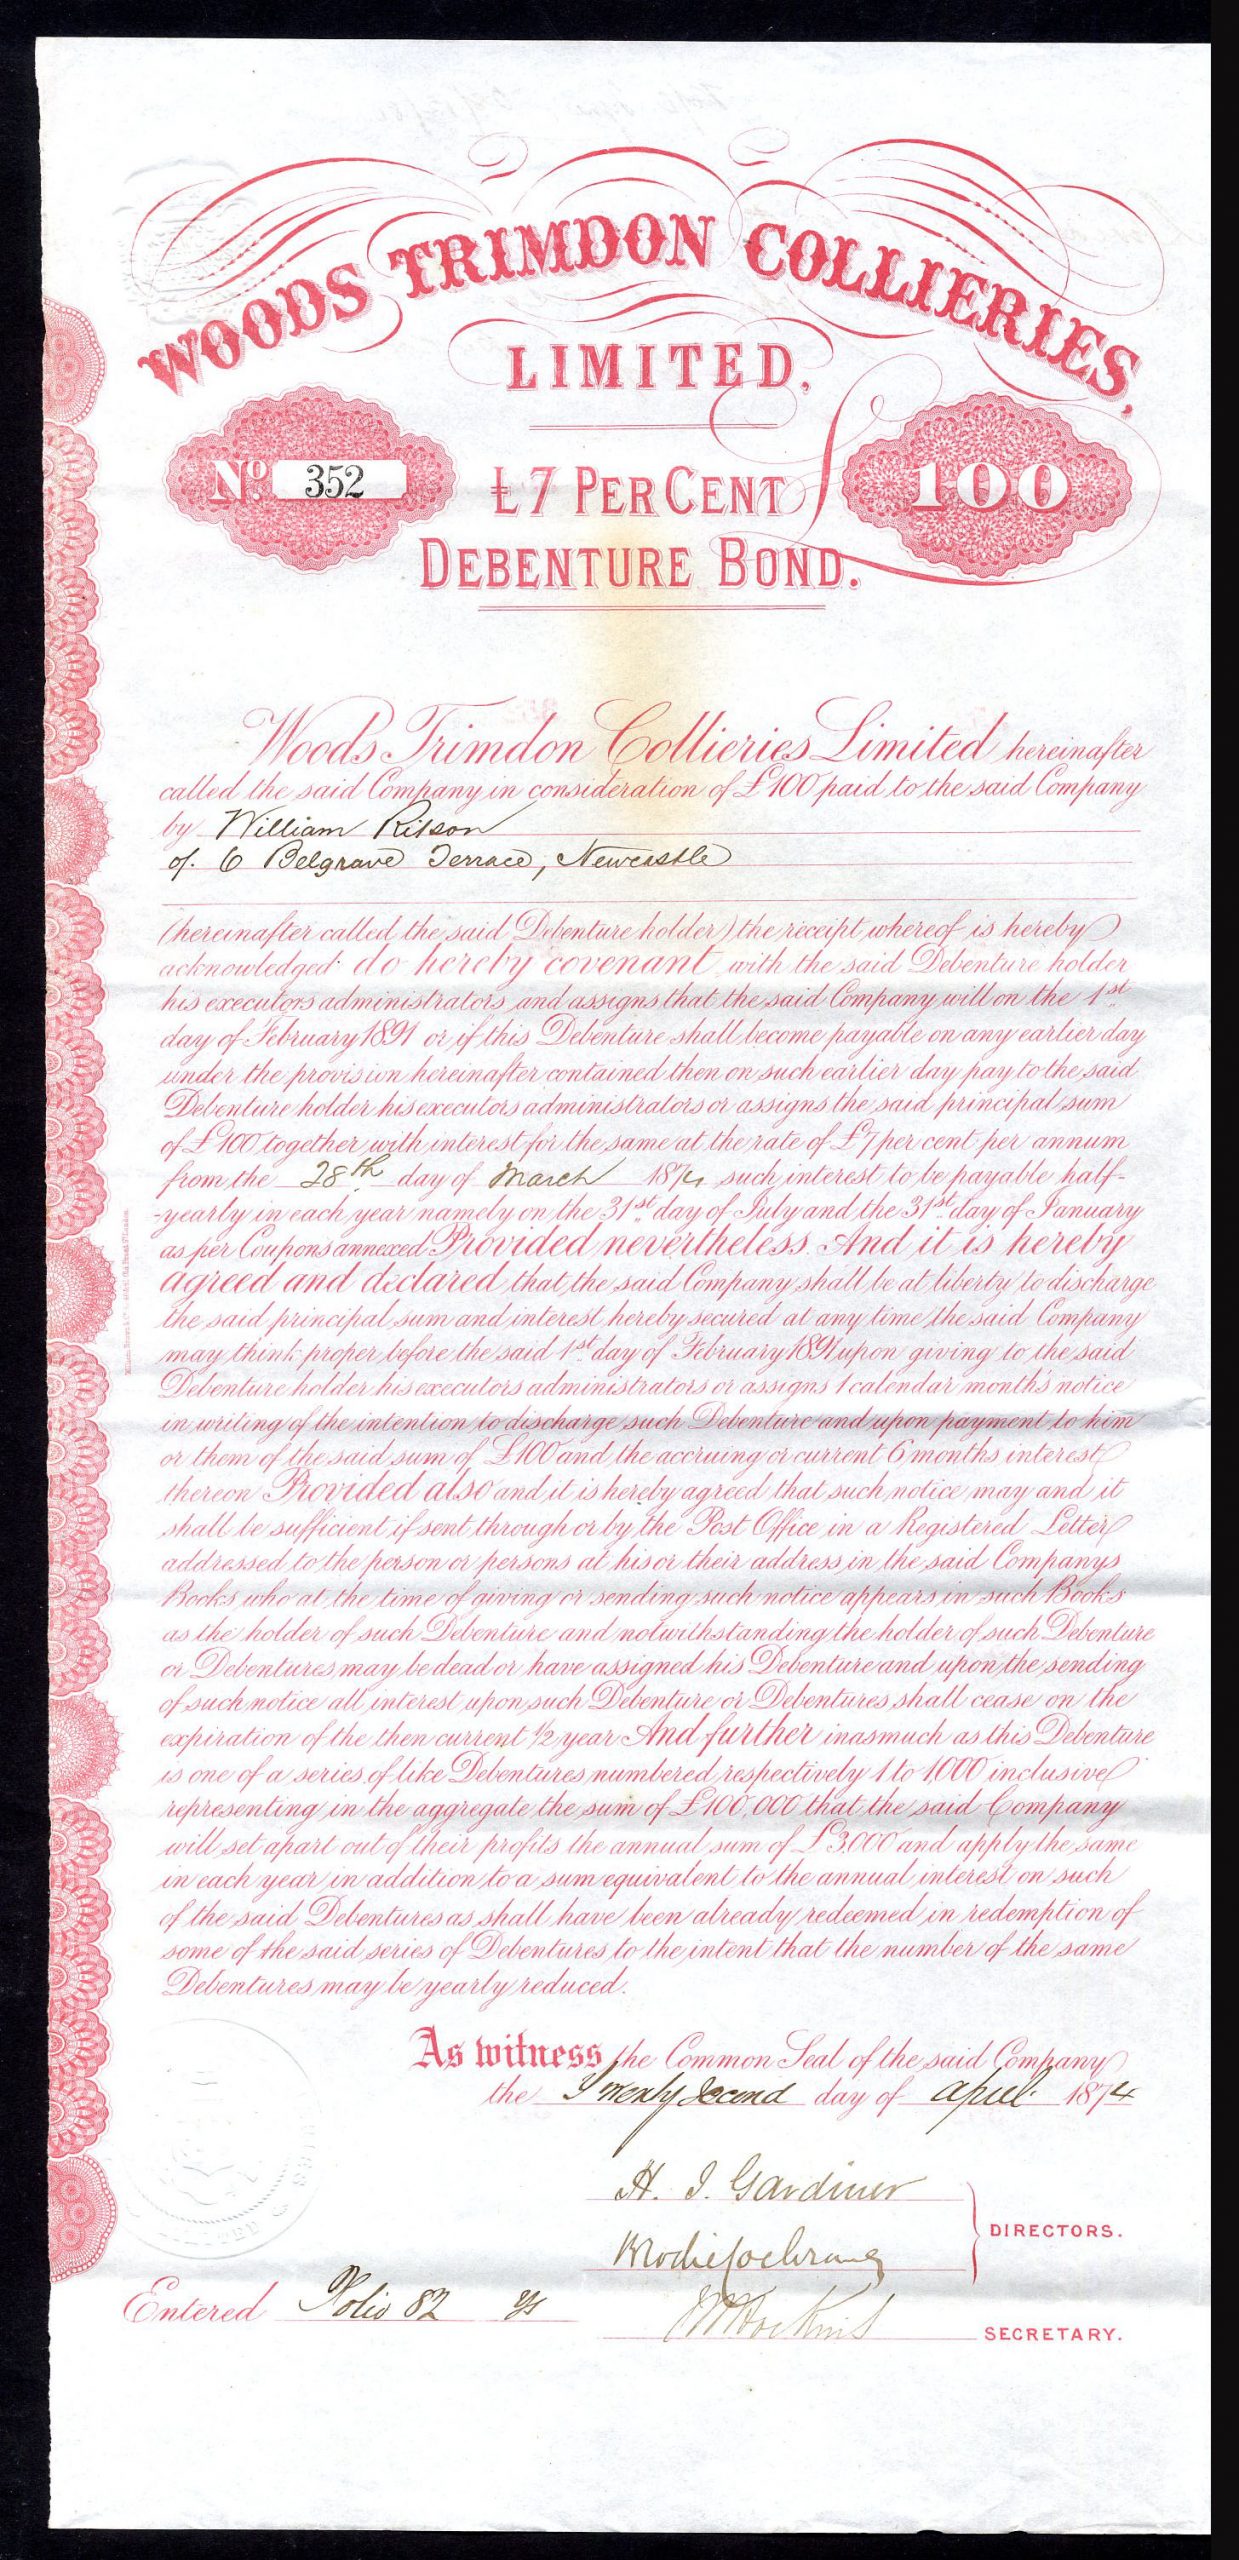 WOODS TRIMDON COLLIERIES,
LIMITED,
No. 352
£7 PER CENT
100
DEBENTURE BOND.
Woods Trimdon Collieries Limited hereinafter
called the said Company in consideration of £100 paid to the said Company
by William Ritson
of 6 Belgrave Terrace, Newcastle
(hereinafter called the said Debenture holder) the receipt whereof is hereby
acknowledged do hereby covenant with the said Debenture holder
his executors administrators and assigns that the said Company will on the 1st
day of February 1891 or if this Debenture shall become payable on any earlier day
under the provision hereinafter contained then on such earlier day pay to the said
Debenture holder his executors administrators or assigns the said principal sum
of £100 together with interest for the same at the rate of £7 per cent per annum
from the 28th day of March 1874 such interest to be payable half-
-yearly in each year namely on the 31st day of July and the 31st day of January
as per Coupons annexed Provided nevertheless And it is hereby
agreed and declared that the said Company shall be at liberty to discharge
the said principal sum and interest hereby secured at any time the said Company
may think proper before the said 1st day of February 1891 upon giving to the said
Debenture holder his executors administrators or assigns 1 calendar month's notice
in writing of the intention to discharge such Debenture and upon payment to him
or them of the said sum of £100 and the accruing or current 6 months interest
thereon Provided also and it is hereby agreed that such notice may and it
shall be sufficient if sent through or by the Post Office in a Registered Letter
addressed to the person or persons at his or their address in the said Companys
Books who at the time of giving or sending such notice appears in such Books
as the holder of such Debenture and notwithstanding the holder of such Debenture
or Debentures may be dead or have assigned his Debenture and upon the sending
of such notice all interest upon such Debenture or Debentures shall cease on the
expiration of the then current ½ year And further inasmuch as this Debenture
is one of a series of like Debentures numbered respectively 1 to 1,000 inclusive
representing in the aggregate the sum of £100,000 that the said Company
will set apart out of their profits the annual sum of £3,000 and apply the same
in each year in addition to a sum equivalent to the annual interest on such
of the said Debentures as shall have been already redeemed in redemption of
some of the said series of Debentures to the intent that the number of the same
Debentures may be yearly reduced.
As witness the Common Seal of the said Company
the Twenty second day of April 1874
H. J. Gardiner
DIRECTORS.
Brodie Cochrane
Entered Folio 82
SECRETARY.